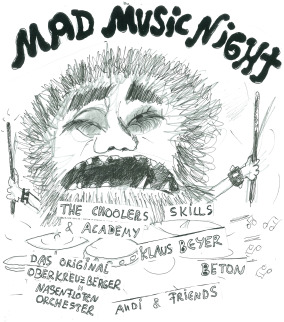 MAD MUSIC NIGHT
THE CHOOLERS SKILLS
& ACADEMY
KLAUS BEYER
DAS ORIGINAL
OBERKREUZBERGER
NASENFLÖTEN
ORCHESTER
BETON
ANDI & FRIENDS